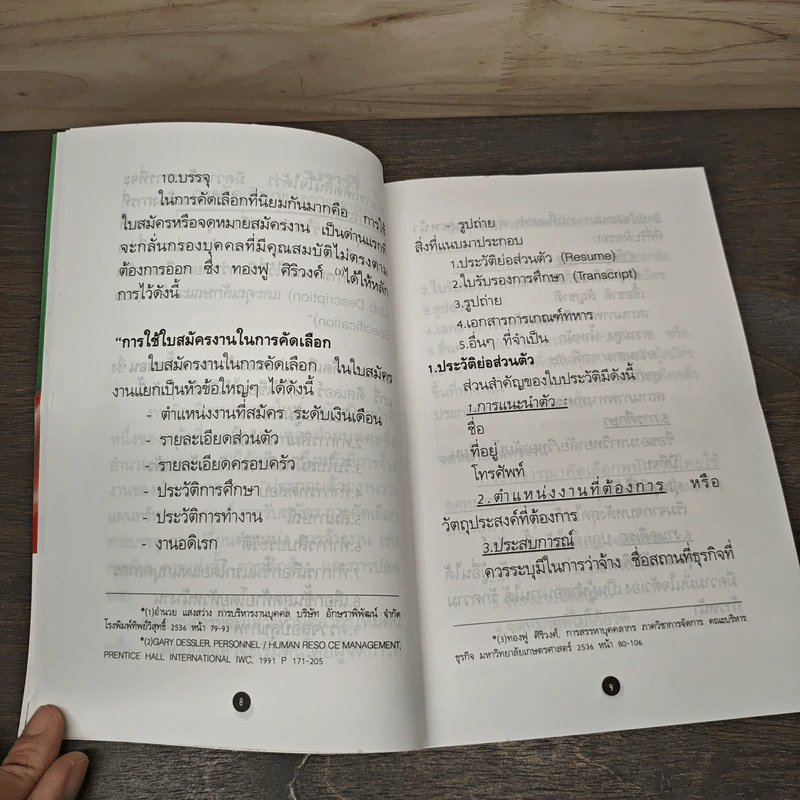 10.บรรจุ
ในการคัดเลือกที่นิยมกันมากคือ การใช้
ใบสมัครหรือจดหมายสมัครงาน เป็นด่านแรกที่
จะกลั่นกรองบุคคลที่มีคุณสมบัติไม่ตรงตาม
ต้องการออก ซึ่ง ทองฟู ศิริวงศ์ (3)ได้ให้หลัก
การไว้ดังนี้
“การใช้ใบสมัครงานในการคัดเลือก
ใบสมัครงานในการคัดเลือก ในใบสมัคร
งานแยกเป็นหัวข้อใหญ่ๆ ได้ดังนี้
- ตำแหน่งงานที่สมัคร ระดับเงินเดือน
- รายละเอียดส่วนตัว
- รายละเอียดครอบครัว
- ประวัติการศึกษา
- ประวัติการทำงาน
- งานอดิเรก
*(1)อำนวย แสงสว่าง การบริหารงานบุคคล บริษัท อักษราพิพัฒน์ จำกัด
โรงพิมพ์ทิพย์วิสุทธิ์ 2536 หน้า 79-93
*(2)GARY DESSLER, PERSONNEL / HUMAN RESO CE MANAGEMENT,
PRENTICE HALL INTERNATIONAL IWC, 1991 P 171-205
8
- รูปถ่าย
สิ่งที่แนบมาประกอบ
1.ประวัติย่อส่วนตัว (Resume)
2.ใบรับรองการศึกษา (Transcript)
3.รูปถ่าย
4.เอกสารการเกณฑ์ทหาร
5.อื่นๆ ที่จำเป็น
1.ประวัติย่อส่วนตัว
ส่วนสำคัญของใบประวัติมีดังนี้
1.การแนะนำตัว :
ชื่อ
ที่อยู่
โทรศัพท์
2.ตำแหน่งงานที่ต้องการ หรือ
วัตถุประสงค์ที่ต้องการ
3.ประสบการณ์
ควรระบุมีในการว่าจ้าง ชื่อสถานที่ธุรกิจที่
*(3)ทองฟู ศิริวงศ์, การสรรหาบุคคลากร ภาควิชาการจัดการ คณะบริหาร
ธุรกิจ มหาวิทยาลัยเกษตรศาสตร์ 2536 หน้า 80-106
9